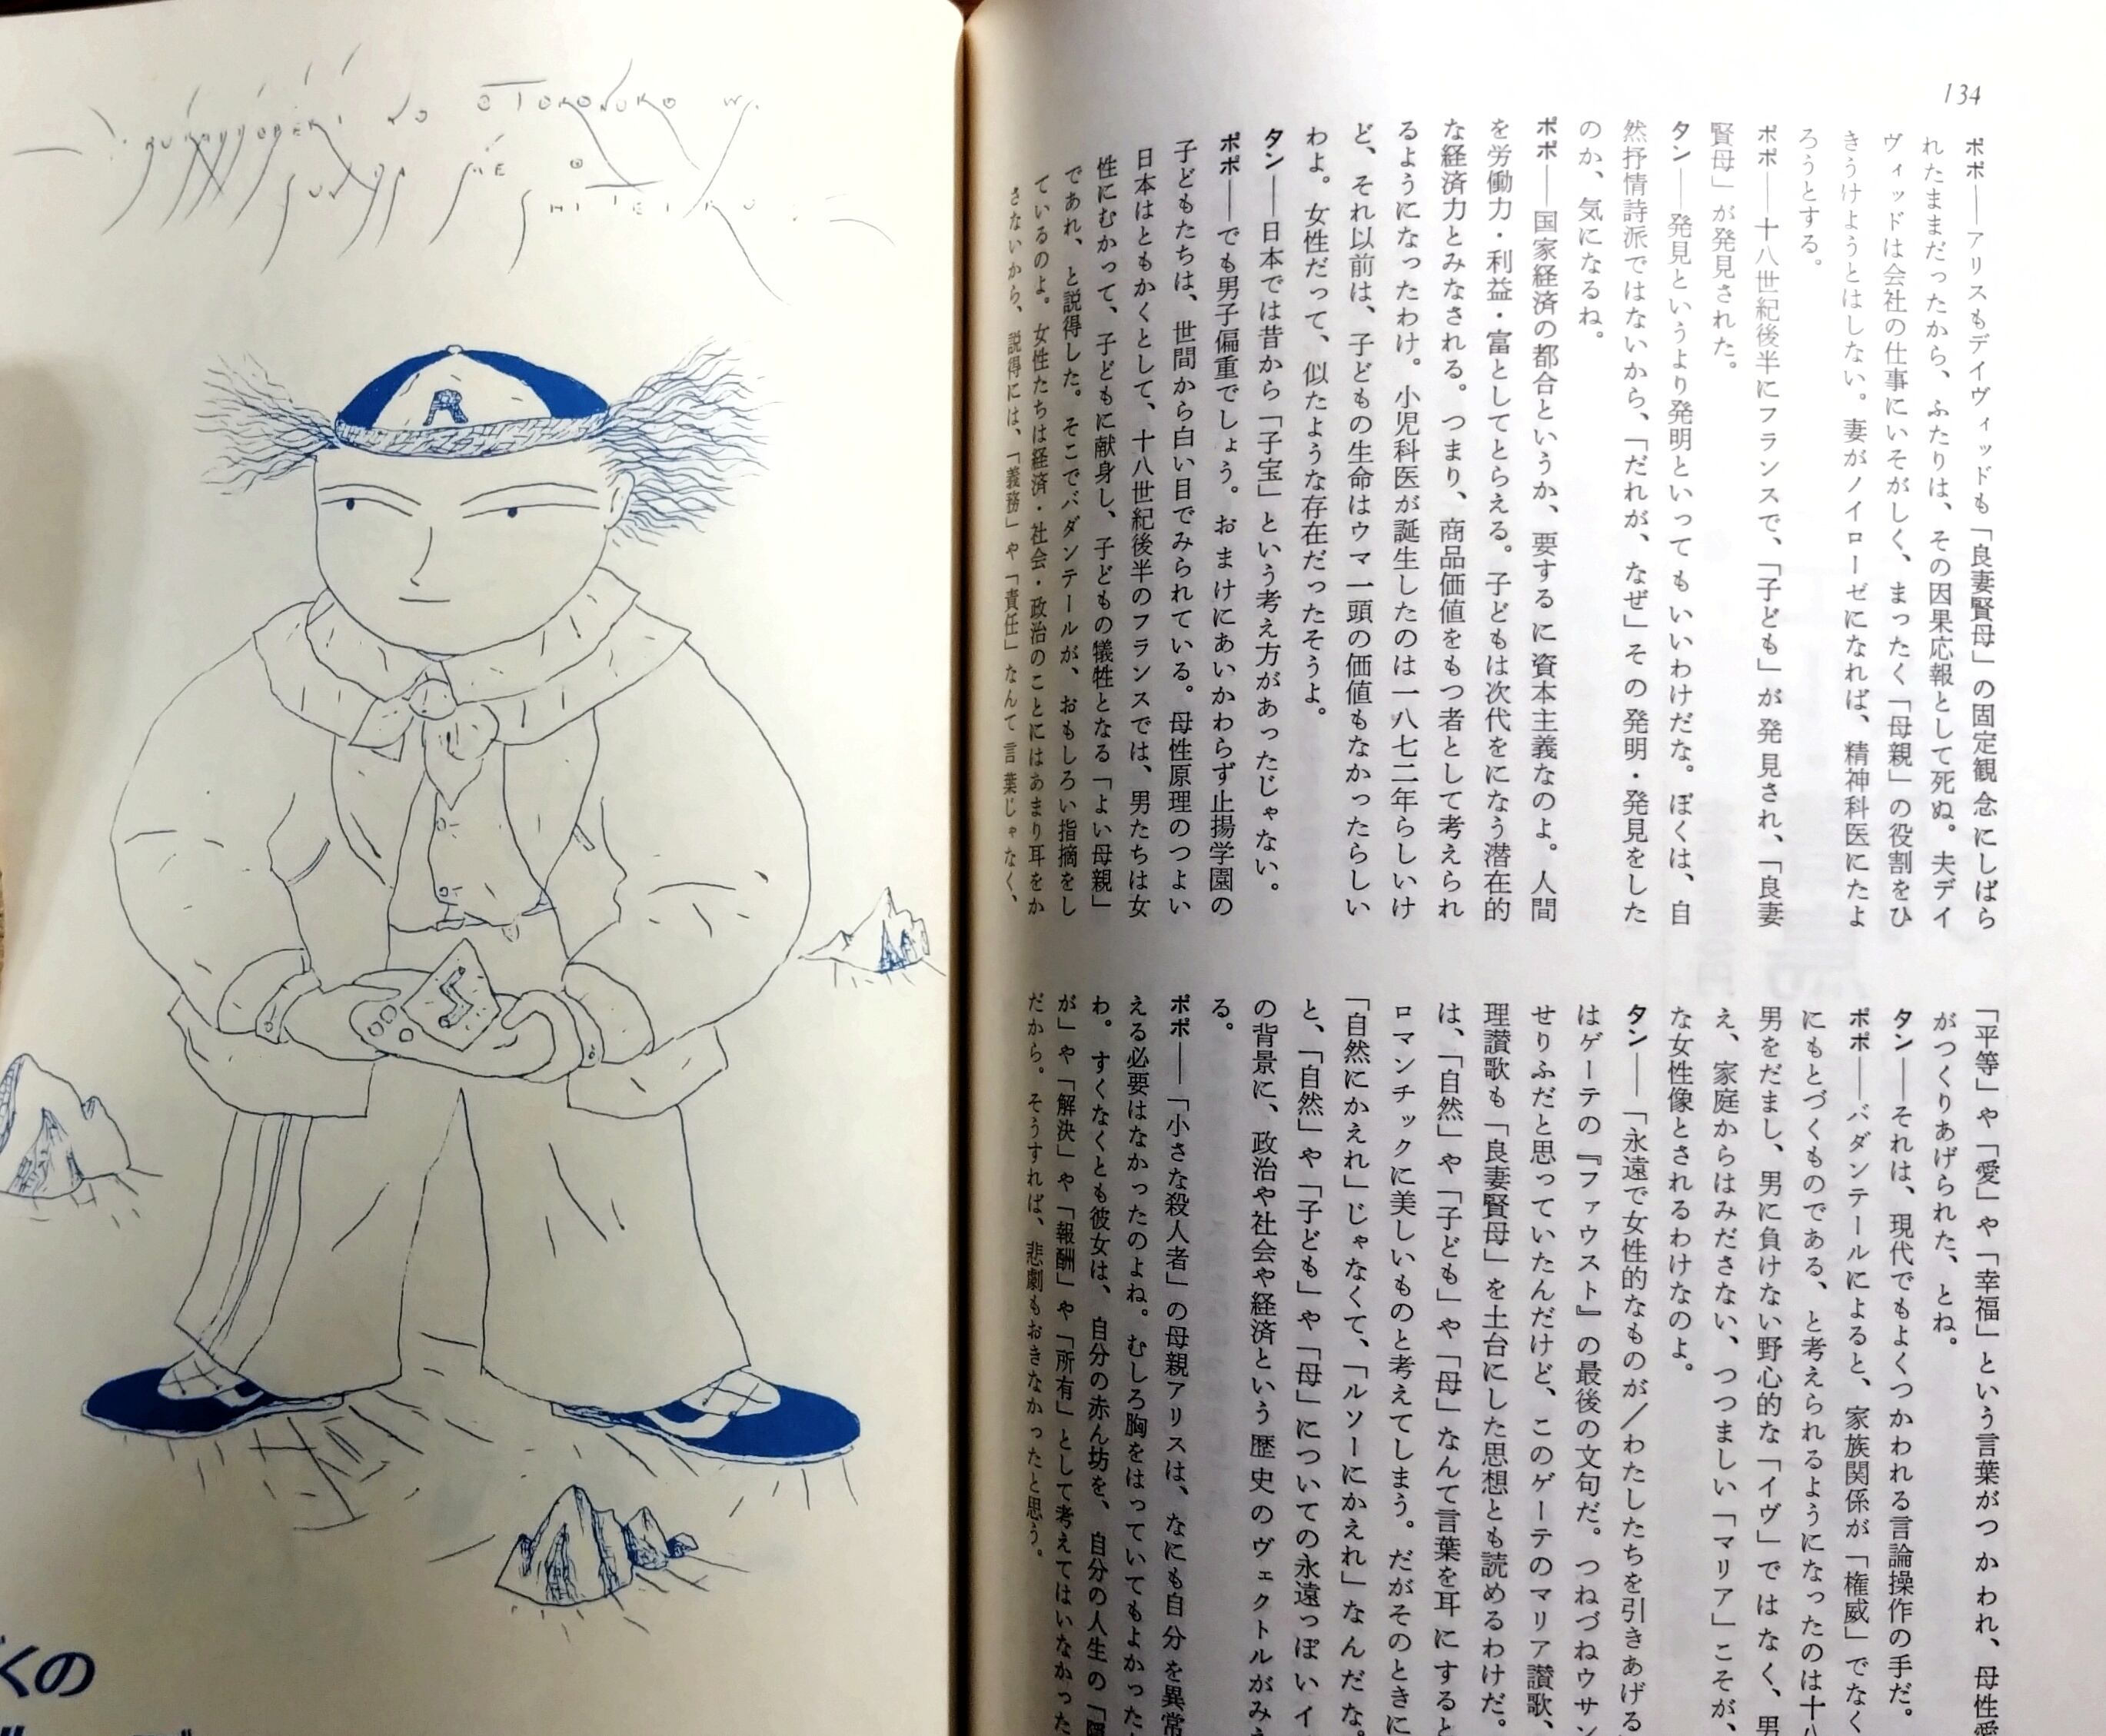 134
ポポ──アリスもデイヴィッドも「良妻賢母」の固定観念にしばら
れたままだったから、ふたりは、その因果応報として死ぬ。夫デイ
ヴィッドは会社の仕事にいそがしく、まったく「母親」の役割をひ
きうけようとはしない。妻がノイローゼになれば、精神科医にたよ
ろうとする。
ポポ──十八世紀後半にフランスで、「子ども」が発見され、「良妻
賢母」が発見された。
タン──発見というより発明といってもいいわけだな。ぼくは、自
然抒情詩派ではないから、「だれが、なぜ」その発明・発見をした
のか、気になるね。
ポポ──国家経済の都合というか、要するに資本主義なのよ。人間
を労働力・利益・富としてとらえる。子どもは次代をになう潜在的
な経済力とみなされる。つまり、商品価値をもつ者として考えられ
るようになったわけ。小児科医が誕生したのは一八七二年らしいけ
ど、それ以前は、子どもの生命はウマ一頭の価値もなかったらしい
わよ。女性だって、似たような存在だったそうよ。
タン──日本では昔から「子宝」という考え方があったじゃない。
ポポ──でも男子偏重でしょう。おまけにあいかわらず止揚学園の
子どもたちは、世間から白い目でみられている。母性原理のつよい
日本はともかくとして、十八世紀後半のフランスでは、男たちは女
性にむかって、子どもに献身し、子どもの犠牲となる「よい母親」
であれ、と説得した。そこでバダンテールが、おもしろい指摘をし
ているのよ。女性たちは経済・社会・政治のことにはあまり耳をか
さないから、説得には、「義務」や「責任」なんて言葉じゃなく、
「平等」や「愛」や「幸福」という言葉がつかわれ、母性愛
がつくりあげられた、とね。
タン──それは、現代でもよくつかわれる言論操作の手だ。
ポポ──バダンテールによると、家族関係が「権威」でなく
にもとづくものである、と考えられるようになったのは十八
男をだまし、男に負けない野心的な「イヴ」ではなく、男
え、家庭からはみださない、つつましい「マリア」こそが、
な女性像とされるわけなのよ。
タン──「永遠で女性的なものが／わたしたちを引きあげる」
はゲーテの『ファウスト』の最後の文句だ。つねづねウサン
せりふだと思っていたんだけど、このゲーテのマリア讃歌、
理讃歌も「良妻賢母」を土台にした思想とも読めるわけだ。
は、「自然」や「子ども」や「母」なんて言葉を耳にすると
ロマンチックに美しいものと考えてしまう。だがそのときに
「自然にかえれ」じゃなくて、「ルソーにかえれ」なんだな。
と、「自然」や「子ども」や「母」についての永遠っぽいイ
の背景に、政治や社会や経済という歴史のヴェクトルがみえ
る。
ポポ──「小さな殺人者」の母親アリスは、なにも自分を異常
える必要はなかったのよね。むしろ胸をはっていてもよかった
わ。すくなくとも彼女は、自分の赤ん坊を、自分の人生の「
が」や「解決」や「報酬」や「所有」として考えてはいなかった
だから。そうすれば、悲劇もおきなかったと思う。
R
くの